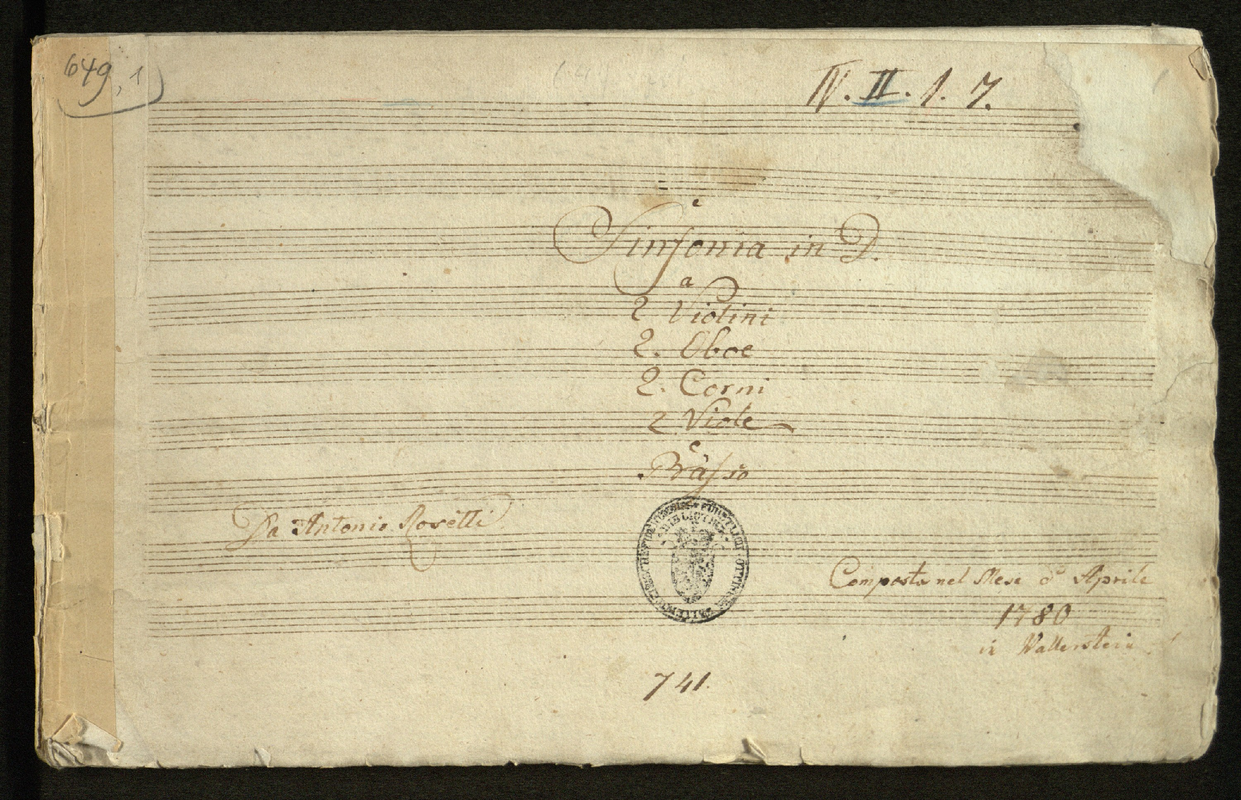 649,1
IV. II. 1. 7.
Sinfonia in D.
a
2 Violini
2. Oboe
2. Corni
2 Viole
e
Basso
Da Antonio Rosetti
BIBLIOTHEK
Composta nel Mese d' Aprile
1780
in Wallerstein
741.